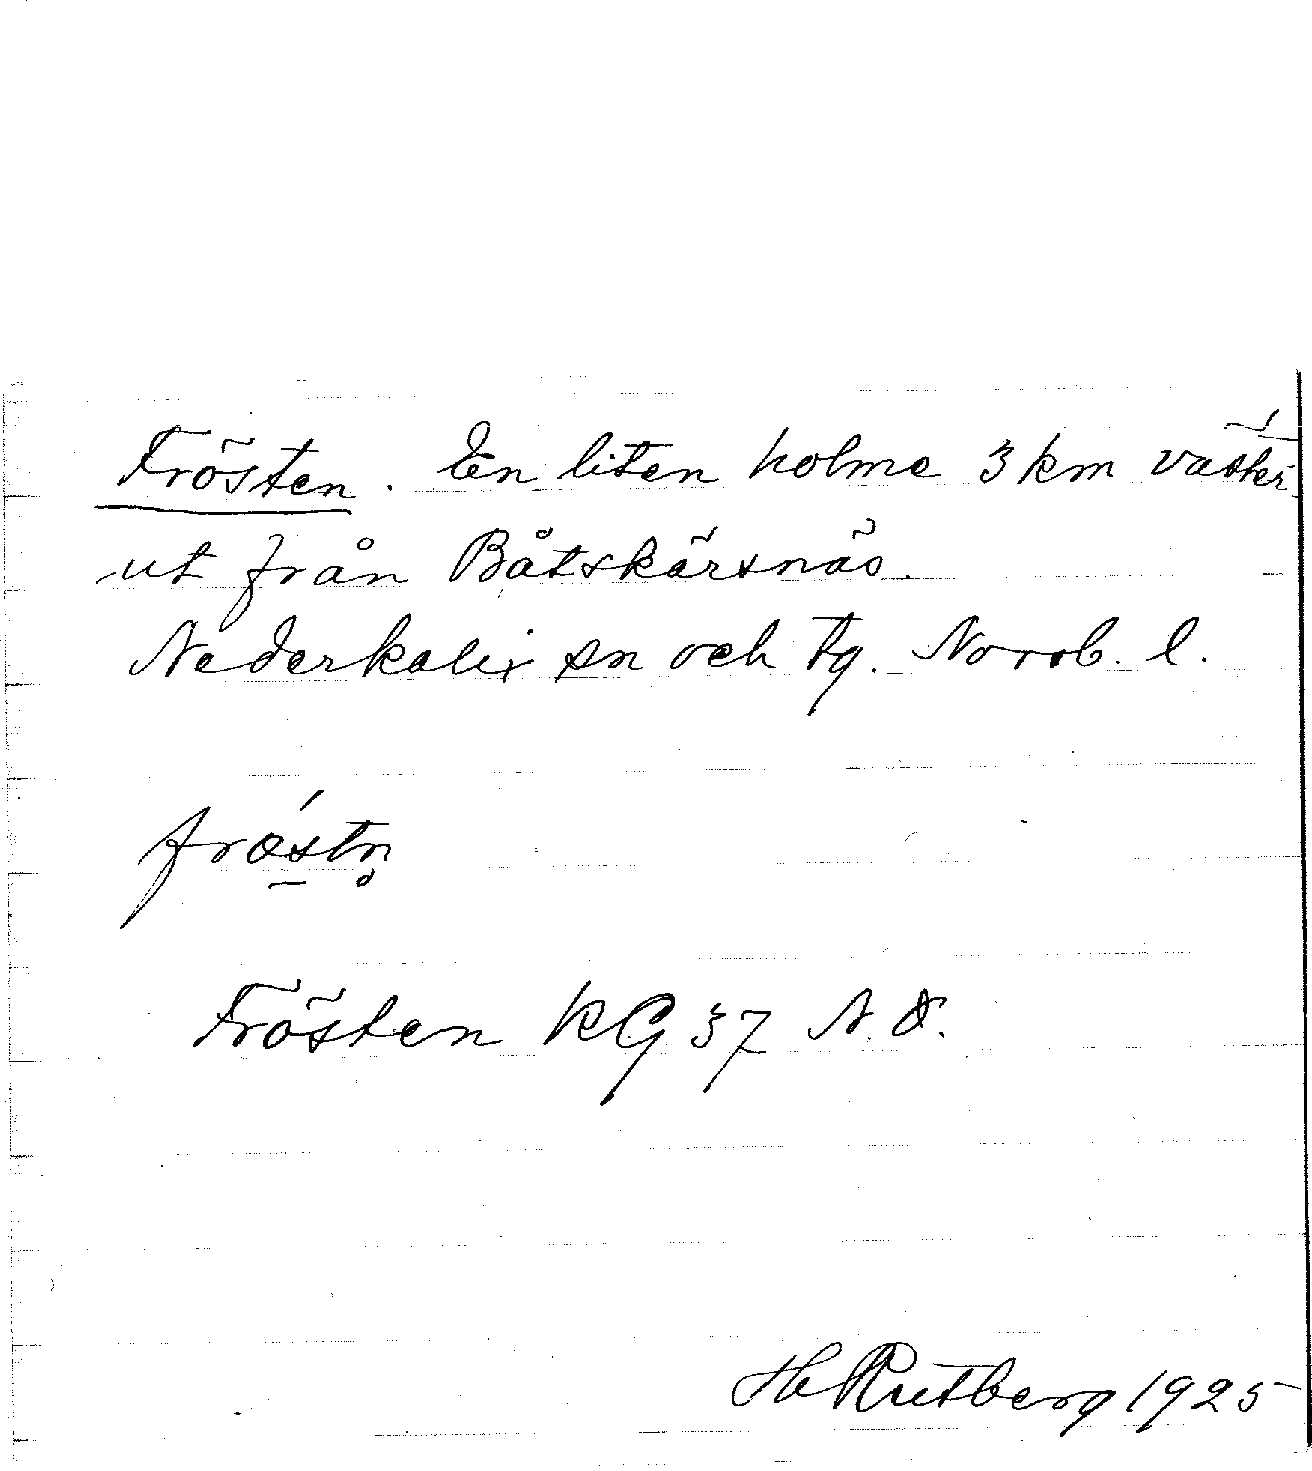 Frösten. En liten holme 3 km väster
ut från Båtskärsnäs.
Nederkalix sn och tg. Norrb. l.
fröstn̥
Frösten KG 37 N.O.
H Rutberg 1925